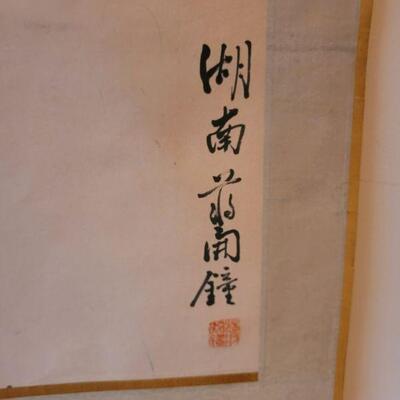 湖南蔣開鐘